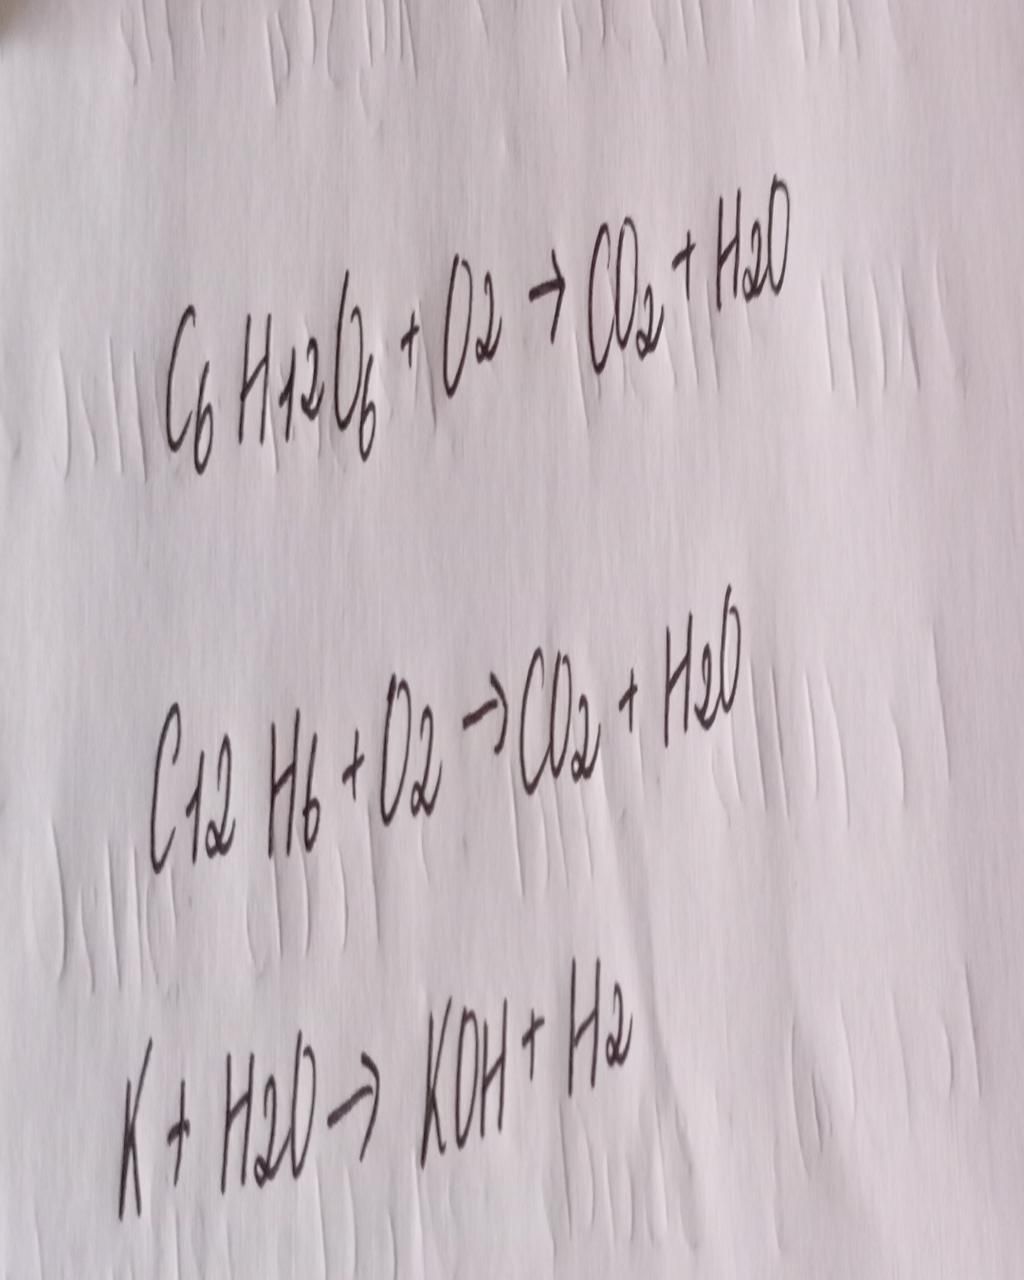 C6 H12O6 + O2 → CO2 + H2O
C12 H6 + O2 → CO2 + H2O
K + H2O → KOH + H2